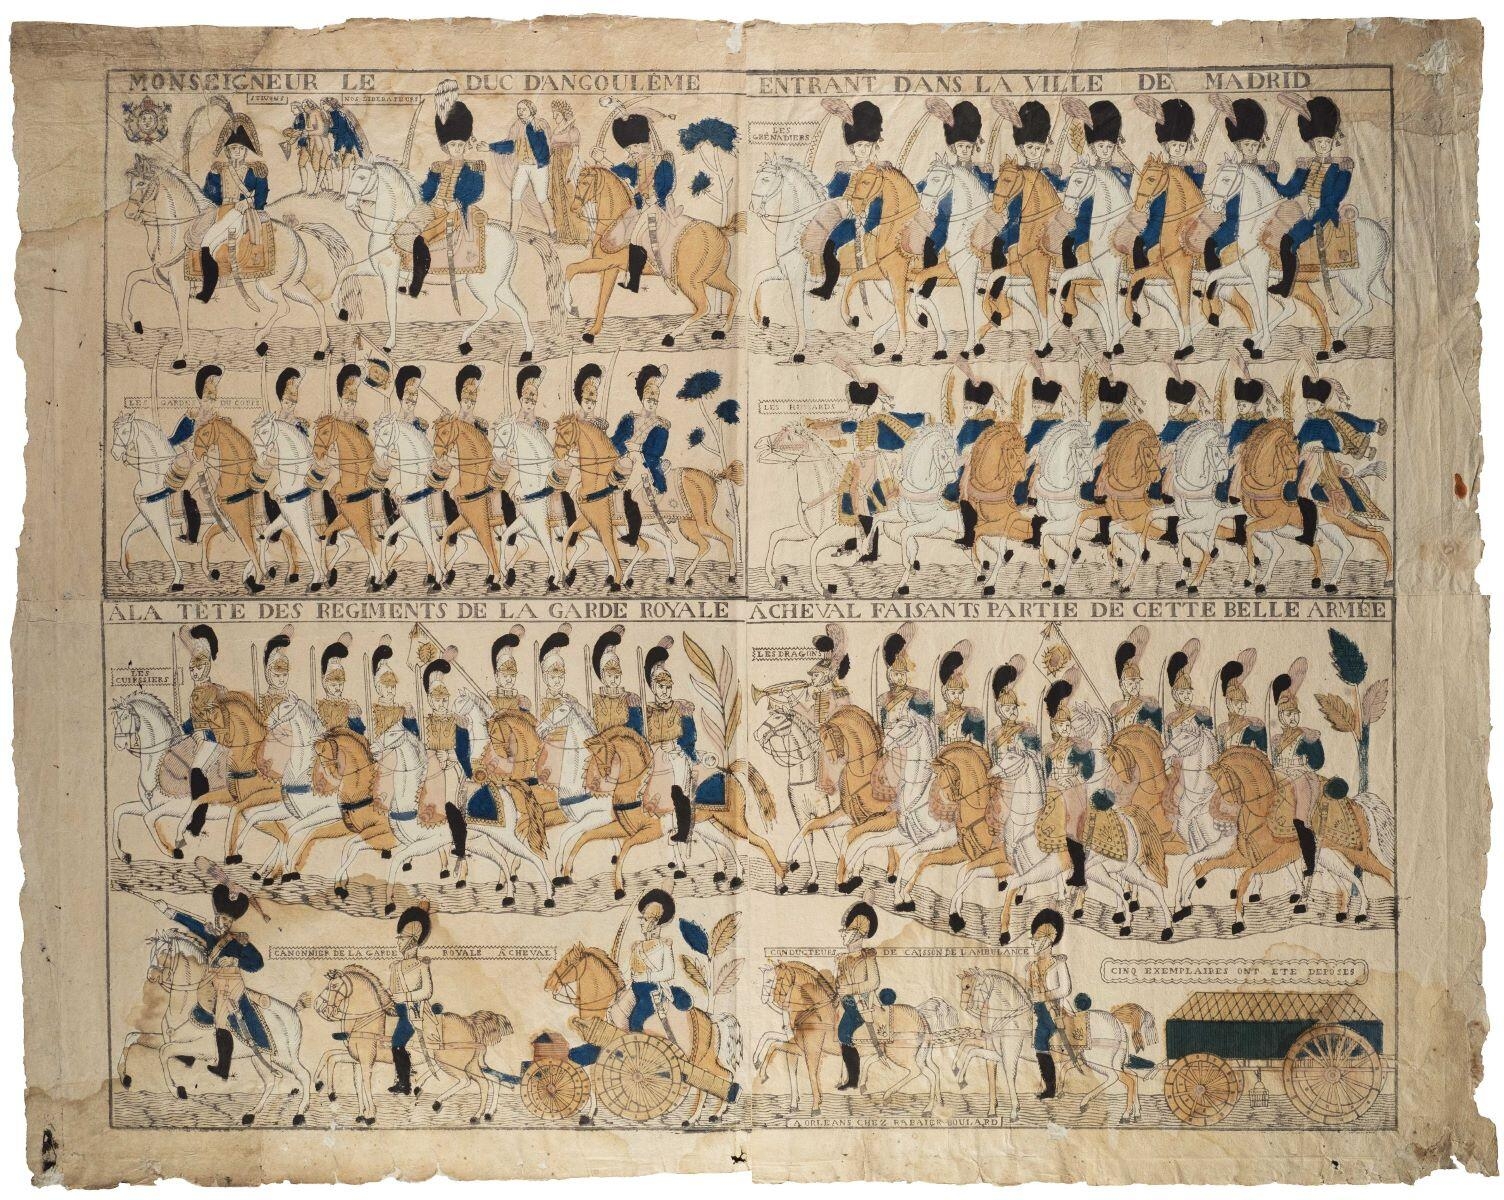 MONSEIGNEUR LE DUC D'ANGOULÊME ENTRANT DANS LA VILLE DE MADRID
NOS LIBERATEURS
LES GRENADIERS
LES GARDES DU CORPS
LES HUSSARDS
À LA TÊTE DES REGIMENTS DE LA GARDE ROYALE À CHEVAL FAISANTS PARTIE DE CETTE BELLE ARMÉE
LES CUIRSSIERS
LES DRAGONS
CANONNIER DE LA GARDE ROYALE À CHEVAL
CONDUCTEURS DE CAISSON DE L'AMBULANCE
CINQ EXEMPLAIRES ONT ETE DEPOSÉS
A ORLEANS CHEZ RABAIER-BOULARD